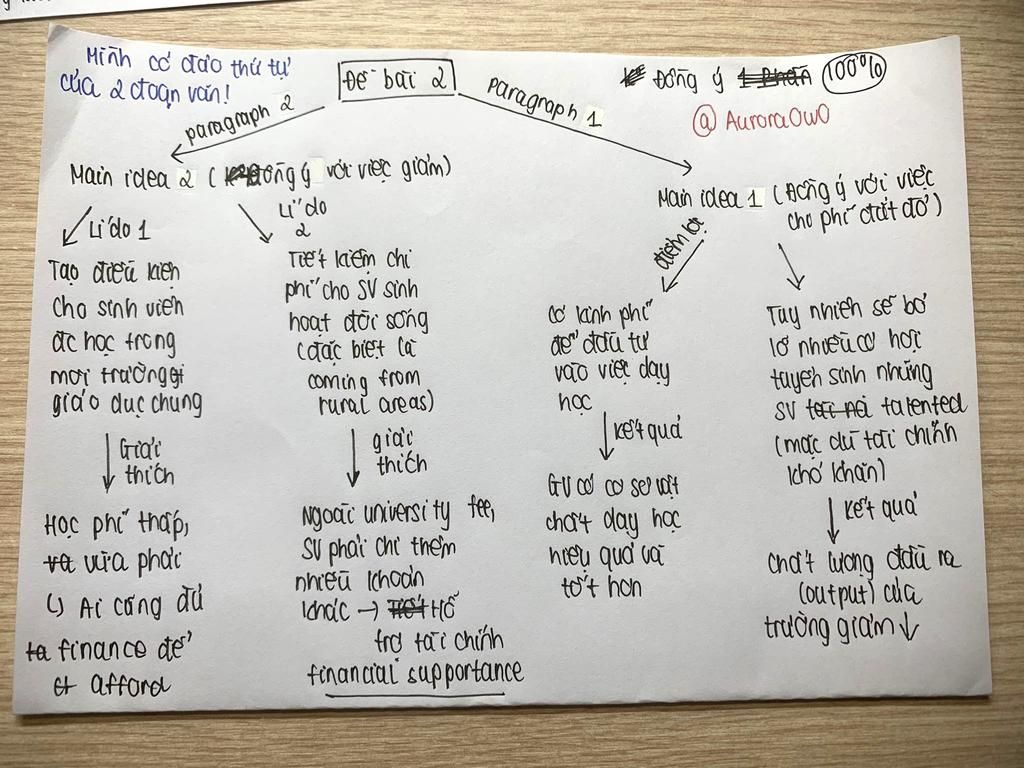 Mình có đảo thứ tự
của 2 đoạn văn!
Đề bài 2
Đồng ý 1 phần 100%
@AuroraOwO
paragraph 2
Paragraph 1
Main idea 2 (Đồng ý với việc giảm)
Lí do 1
Tạo điều kiện
cho sinh viên
đc học trong
môi trường
giáo dục chung
Giải
thích
Học phí thấp,
và vừa phải
↳ Ai cũng đủ
ta finance để
afford
Lí do
2
Tiết kiệm chi
phí cho SV sinh
hoạt đời sống
(đặc biệt là
coming from
rural areas)
giải
thích
Ngoài university fee,
SV phải chi thêm
nhiều khoản
khác → Tiết Hỗ
trợ tài chính
financial supportance
Main idea 1 (Đồng ý với việc
cho phí đắt đỏ)
điểm lợi
có kinh phí
để đầu tư
vào việc dạy
học
kết quả
GV có cơ sở vật
chất dạy học
hiệu quả và
tốt hơn
Tuy nhiên sẽ bỏ
lỡ nhiều cơ hội
tuyển sinh những
SV talented
(mặc dù tài chính
khó khăn)
kết quả
chất lượng đầu ra
(output) của
trường giảm ↓